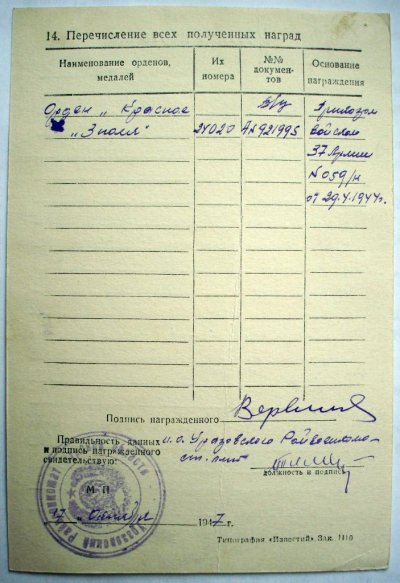 14. Перечисление всех полученных наград
Наименование орденов, медалей
Их номера
№№ документов
Основание награждения
Орден „Красное Знамя"
24020
б/у АN921995
Приказом
войскам
37 Армии
N059/н
от 29.4.1944г.
Подпись награжденного
Правильность данных и.о. Уразовского Райвоенкома
и подпись награжденного ст. л-нт
свидетельствую:
должность и подпись
М П
17 „ Октября 1947 г.
Типография «Известий» Зак. 1110